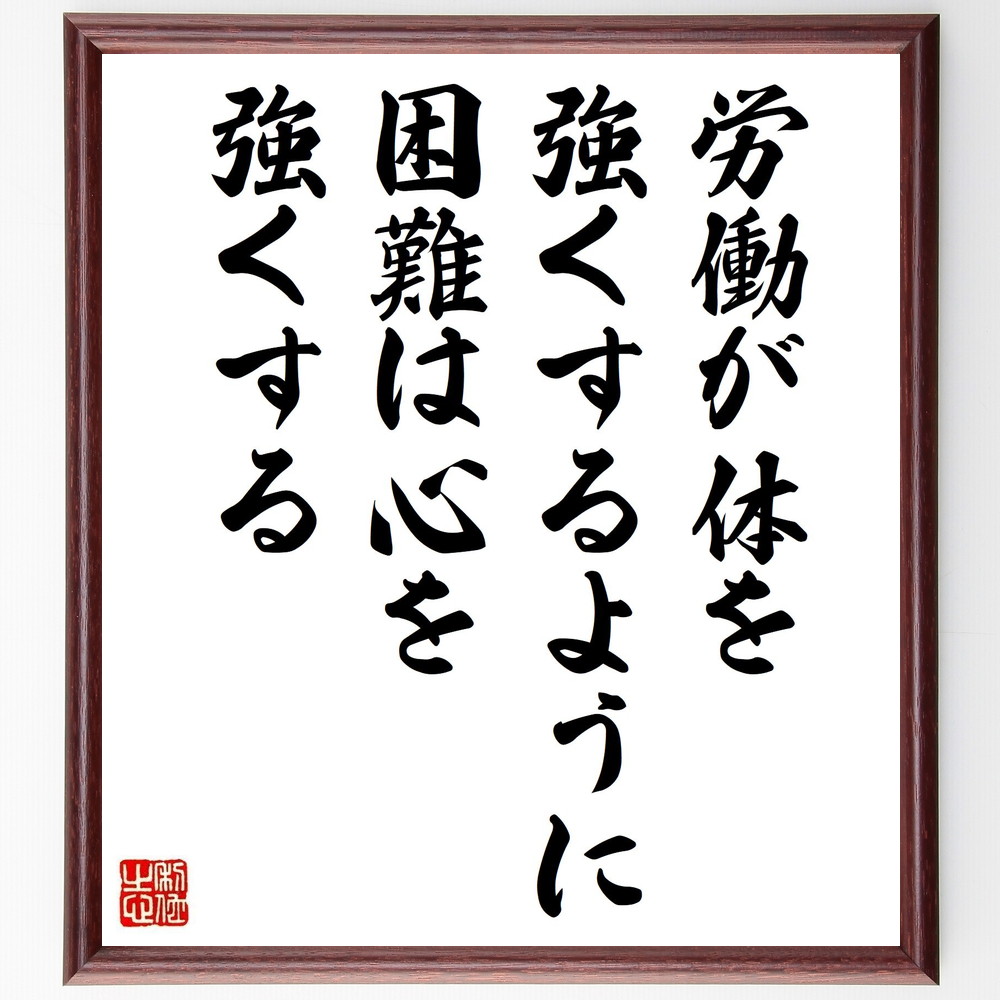 労働が体を
強くするように
困難は心を
強くする